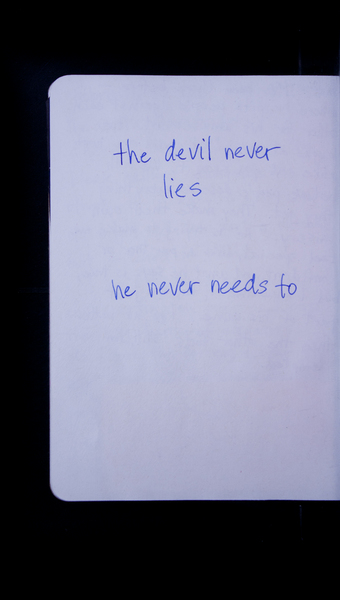 the devil never
lies
he never needs to